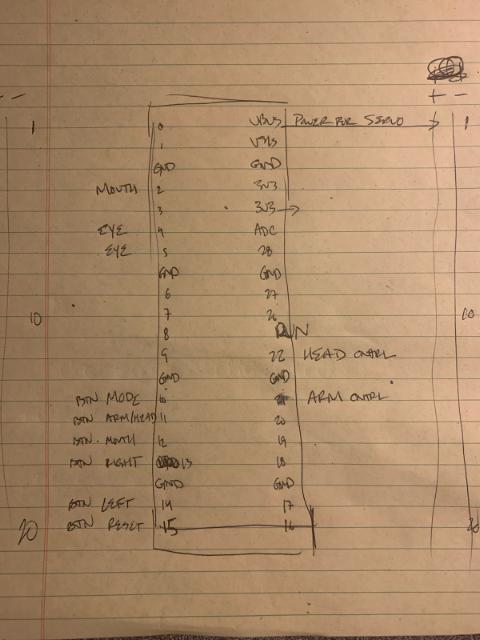 + -
- -
1 0 VBUS POWER FOR SERVO 1
1 VSYS
GND GND
MOUTH 2 3V3
3 3V3
EYE 4 ADC
EYE 5 28
GND GND
6 27
10 7 26 10
8 RUN
9 22 HEAD CNTRL
GND GND
BTN MODE 10 21 ARM CNTRL
BTN ARM/HEAD 11 20
BTN MOUTH 12 19
BTN RIGHT 13 18
GND GND
BTN LEFT 14 17
20 BTN RESET 15 16 20